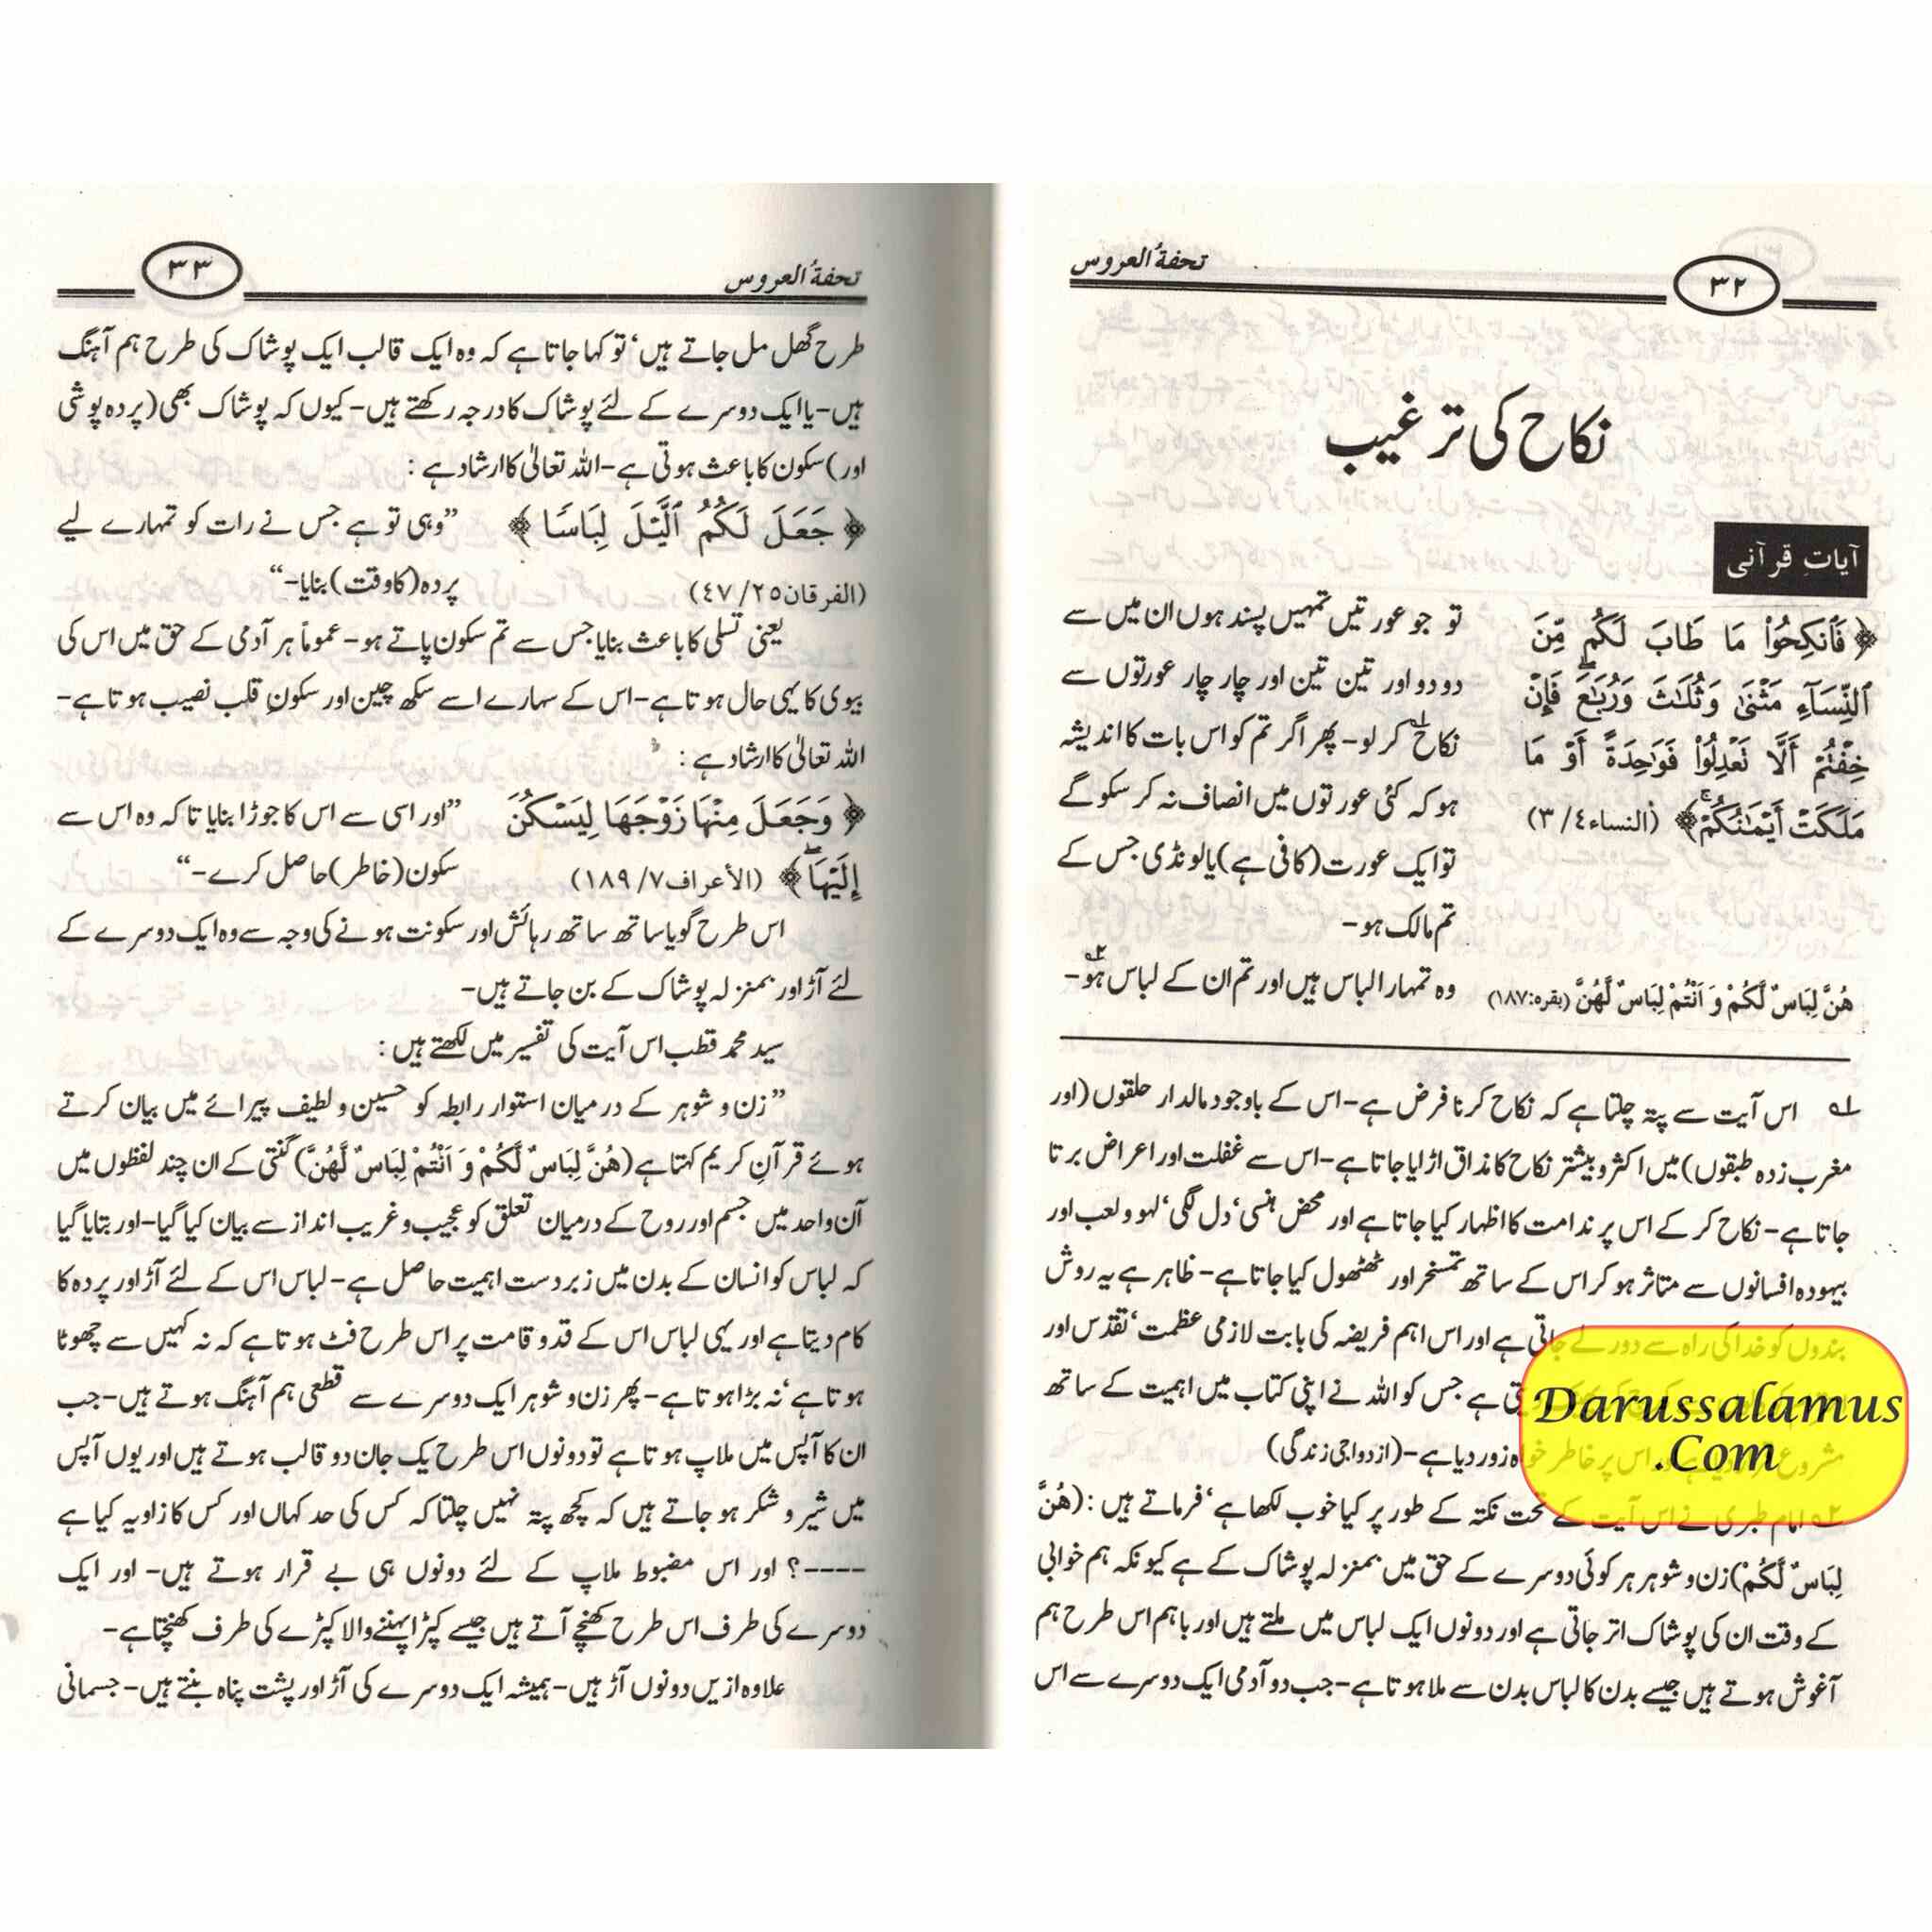 تحفۃُ العروس
۳۲
نکاح کی ترغیب
آیاتِ قرآنی
﴿ فَٱنكِحُوا۟ مَا طَابَ لَكُم مِّنَ
ٱلنِّسَآءِ مَثْنَىٰ وَثُلَـٰثَ وَرُبَـٰعَ ۖ فَإِنْ
خِفْتُمْ أَلَّا تَعْدِلُوا۟ فَوَٰحِدَةً أَوْ مَا
مَلَكَتْ أَيْمَـٰنُكُمْ ۚ ﴾ (النساء٤/ ٣)
تو جو عورتیں تمہیں پسند ہوں ان میں سے
دو دو اور تین تین اور چار چار عورتوں سے
نکاح۱؎ کر لو- پھر اگر تم کو اس بات کا اندیشہ
ہو کہ کئی عورتوں میں انصاف نہ کر سکو گے
تو ایک عورت (کافی ہے) یا لونڈی جس کے
تم مالک ہو-
هُنَّ لِبَاسٌ لَّكُمْ وَ اَنْتُمْ لِبَاسٌ لَّهُنَّ (بقرہ:۱۸۷)
وہ تمہارا لباس ہیں اور تم ان کے لباس ہو۲؎-
۱؎ اس آیت سے پتہ چلتا ہے کہ نکاح کرنا فرض ہے- اس کے باوجود مالدار حلقوں (اور
مغرب زدہ طبقوں) میں اکثر و بیشتر نکاح کا مذاق اڑایا جاتا ہے- اس سے غفلت اور اعراض برتا
جاتا ہے- نکاح کر کے اس پر ندامت کا اظہار کیا جاتا ہے اور محض ہنسی‘ دل لگی‘ لہو و لعب اور
بیہودہ افسانوں سے متاثر ہو کر اس کے ساتھ تمسخر اور ٹھٹھول کیا جاتا ہے- ظاہر ہے یہ روش
بندوں کو خدا کی راہ سے دور لے جاتی ہے اور اس اہم فریضہ کی بابت لازمی عظمت‘ تقدس اور
ہے جس کو اللہ نے اپنی کتاب میں اہمیت کے ساتھ
مشروع اس پر خاطر خواہ زور دیا ہے- (ازدواجی زندگی)
۲؎ امام طبری نے اس آیت کے تحت نکتہ کے طور پر کیا خوب لکھا ہے‘ فرماتے ہیں : (هُنَّ
لِبَاسٌ لَّكُمْ) زن و شوہر ہر کوئی دوسرے کے حق میں بمنزلہ پوشاک کے ہے کیونکہ ہم خوابی
کے وقت ان کی پوشاک اتر جاتی ہے اور دونوں ایک لباس میں ملتے ہیں اور باہم اس طرح ہم
آغوش ہوتے ہیں جیسے بدن کا لباس بدن سے ملا ہوتا ہے- جب دو آدمی ایک دوسرے سے اس
Darussalamus
.Com
تحفۃُ العروس
۳۳
طرح گھل مل جاتے ہیں‘ تو کہا جاتا ہے کہ وہ ایک قالب ایک پوشاک کی طرح ہم آہنگ
ہیں- یا ایک دوسرے کے لئے پوشاک کا درجہ رکھتے ہیں- کیوں کہ پوشاک بھی (پردہ پوشی
اور) سکون کا باعث ہوتی ہے- اللہ تعالیٰ کا ارشاد ہے :
﴿ جَعَلَ لَكُمُ ٱلَّيْلَ لِبَاسًا ﴾ ”وہی تو ہے جس نے رات کو تمہارے لیے
(الفرقان٢٥/ ٤٧) پردہ (کا وقت) بنایا-“
یعنی تسلی کا باعث بنایا جس سے تم سکون پاتے ہو- عموماً ہر آدمی کے حق میں اس کی
بیوی کا یہی حال ہوتا ہے- اس کے سہارے اسے سکھ چین اور سکونِ قلب نصیب ہوتا ہے-
اللہ تعالیٰ کا ارشاد ہے :
﴿ وَجَعَلَ مِنْهَا زَوْجَهَا لِيَسْكُنَ ”اور اسی سے اس کا جوڑا بنایا تاکہ وہ اس سے
إِلَيْهَا ۖ ﴾ (الأعراف٧/ ١٨٩) سکون (خاطر) حاصل کرے-“
اس طرح گویا ساتھ ساتھ رہائش اور سکونت ہونے کی وجہ سے وہ ایک دوسرے کے
لئے آڑ اور بمنزلہ پوشاک کے بن جاتے ہیں-
سید محمد قطب اس آیت کی تفسیر میں لکھتے ہیں :
”زن و شوہر کے درمیان استوار رابطہ کو حسین و لطیف پیرائے میں بیان کرتے
ہوئے قرآنِ کریم کہتا ہے (هُنَّ لِبَاسٌ لَّكُمْ وَ اَنْتُمْ لِبَاسٌ لَّهُنَّ) گنتی کے ان چند لفظوں میں
آن واحد میں جسم اور روح کے درمیان تعلق کو عجیب و غریب انداز سے بیان کیا گیا- اور بتایا گیا
کہ لباس کو انسان کے بدن میں زبردست اہمیت حاصل ہے- لباس اس کے لئے آڑ اور پردہ کا
کام دیتا ہے اور یہی لباس اس کے قد و قامت پر اس طرح فٹ ہوتا ہے کہ نہ کہیں سے چھوٹا
ہوتا ہے‘ نہ بڑا ہوتا ہے- پھر زن و شوہر ایک دوسرے سے قطعی ہم آہنگ ہوتے ہیں- جب
ان کا آپس میں ملاپ ہوتا ہے تو دونوں اس طرح یک جان دو قالب ہوتے ہیں اور یوں آپس
میں شیر و شکر ہو جاتے ہیں کہ کچھ پتہ نہیں چلتا کہ کس کی حد کہاں اور کس کا زاویہ کیا ہے
----؟ اور اس مضبوط ملاپ کے لئے دونوں ہی بے قرار ہوتے ہیں- اور ایک
دوسرے کی طرف اس طرح کھنچے آتے ہیں جیسے کپڑا پہننے والا کپڑے کی طرف کھنچتا ہے-
علاوہ ازیں دونوں آڑ ہیں- ہمیشہ ایک دوسرے کی آڑ اور پشت پناہ بنتے ہیں- جسمانی